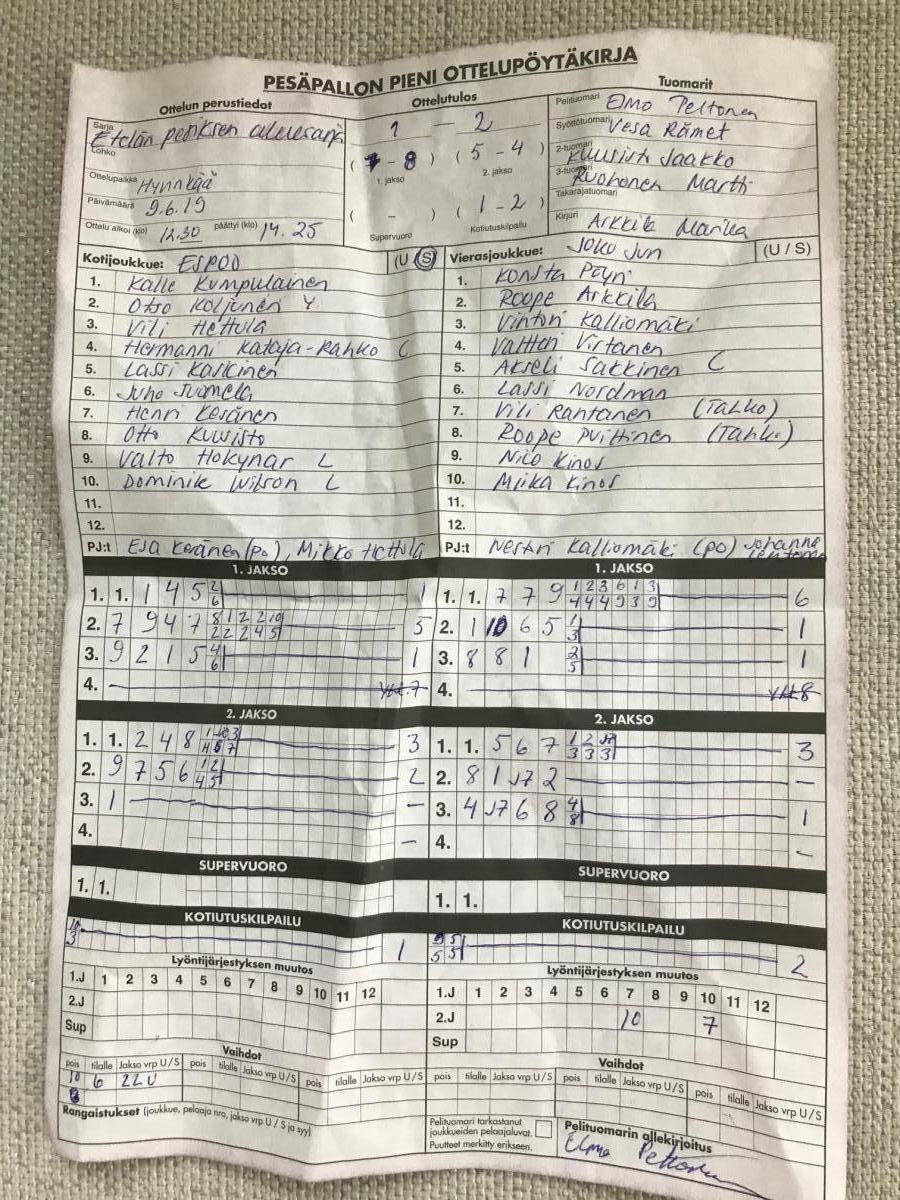 PESÄPALLON PIENI OTTELUPÖYTÄKIRJA
Ottelun perustiedot
Ottelutulos
Tuomarit
Sarja Etelän
Lohko
Ottelupaikka Hyvinkää
Päivämäärä 9.6.19
Ottelu alkoi (klo) 12.30 päättyi (klo) 14.25
1 - 2
(7 - 8) (5 - 4)
1. jakso 2. jakso
( - ) (1 - 2)
Supervuoro Kotiutuskilpailu
Pelituomari Elmo Peltonen
Syöttötuomari Vesa Rämet
2-tuomari Kuusisto Jaakko
3-tuomari Ruohonen Martti
Takarajatuomari
Kirjuri Arkkila Marika
Kotijoukkue: ESPOO (U / S)
1. Kalle Kumpulainen
2. Otso Koljunen Y
3. Vili Hettula
4. Hermanni Kataja-Rahko C
5. Lassi Kaikinen
6. Juho Juomela
7. Henri Keränen
8. Otto Kuusisto
9. Valto Hokynar L
10. Dominik Wilson L
11.
12.
PJ:t Esa Keränen (po), Mikko Hettula
Vierasjoukkue: JoKo Jun (U / S)
1. Konsta Pöyri
2. Roope Arkkila
3. Vinton Kalliomäki
4. Valtteri Virtanen
5. Akseli Sakkinen C
6. Lassi Nordman
7. Vili Rantanen (Tahko)
8. Roope Puittinen (Tahko)
9. Nico Kinos
10. Miika Kinos
11.
12.
PJ:t Nestori Kalliomäki (po) Johanna
1. JAKSO
1. 1. 1 4 5 2/6 1
2. 7 9 4 7 8/2 1/2 2/2 2/4 10/5 5
3. 9 2 1 5 4/6 1
4. yht. 7
1. JAKSO
1. 1. 7 7 9 1/4 2/4 3/4 6/9 1/3 3/9 6
2. 1 10 6 5 1/3 1
3. 8 8 1 2/5 1
4. yht 8
2. JAKSO
1. 1. 2 4 8 3
2. 9 7 5 6 1/4 2/5 2
3. 1 -
4. -
2. JAKSO
1. 1. 5 6 7 1/3 2/3 J7/3 3
2. 8 1 J7 2 -
3. 4 J7 6 8 4/8 1
4. -
SUPERVUORO
1. 1.
SUPERVUORO
1. 1.
KOTIUTUSKILPAILU
10/3 1
KOTIUTUSKILPAILU
5/5 5/5 2
Lyöntijärjestyksen muutos
1.J 1 2 3 4 5 6 7 8 9 10 11 12
2.J
Sup
Lyöntijärjestyksen muutos
1.J 1 2 3 4 5 6 7 8 9 10 11 12
2.J 10 7
Sup
Vaihdot
pois tilalle Jakso vrp U / S pois tilalle Jakso vrp U / S pois tilalle Jakso vrp U / S
10 6 22U
Vaihdot
pois tilalle Jakso vrp U / S pois tilalle Jakso vrp U / S pois tilalle Jakso vrp U / S
Rangaistukset (joukkue, pelaaja nro, jakso vrp U / S ja syy)
Pelituomari tarkastanut
joukkueiden pelaajaluvat.
Puutteet merkitty erikseen.
Pelituomarin allekirjoitus
Elmo Peltonen